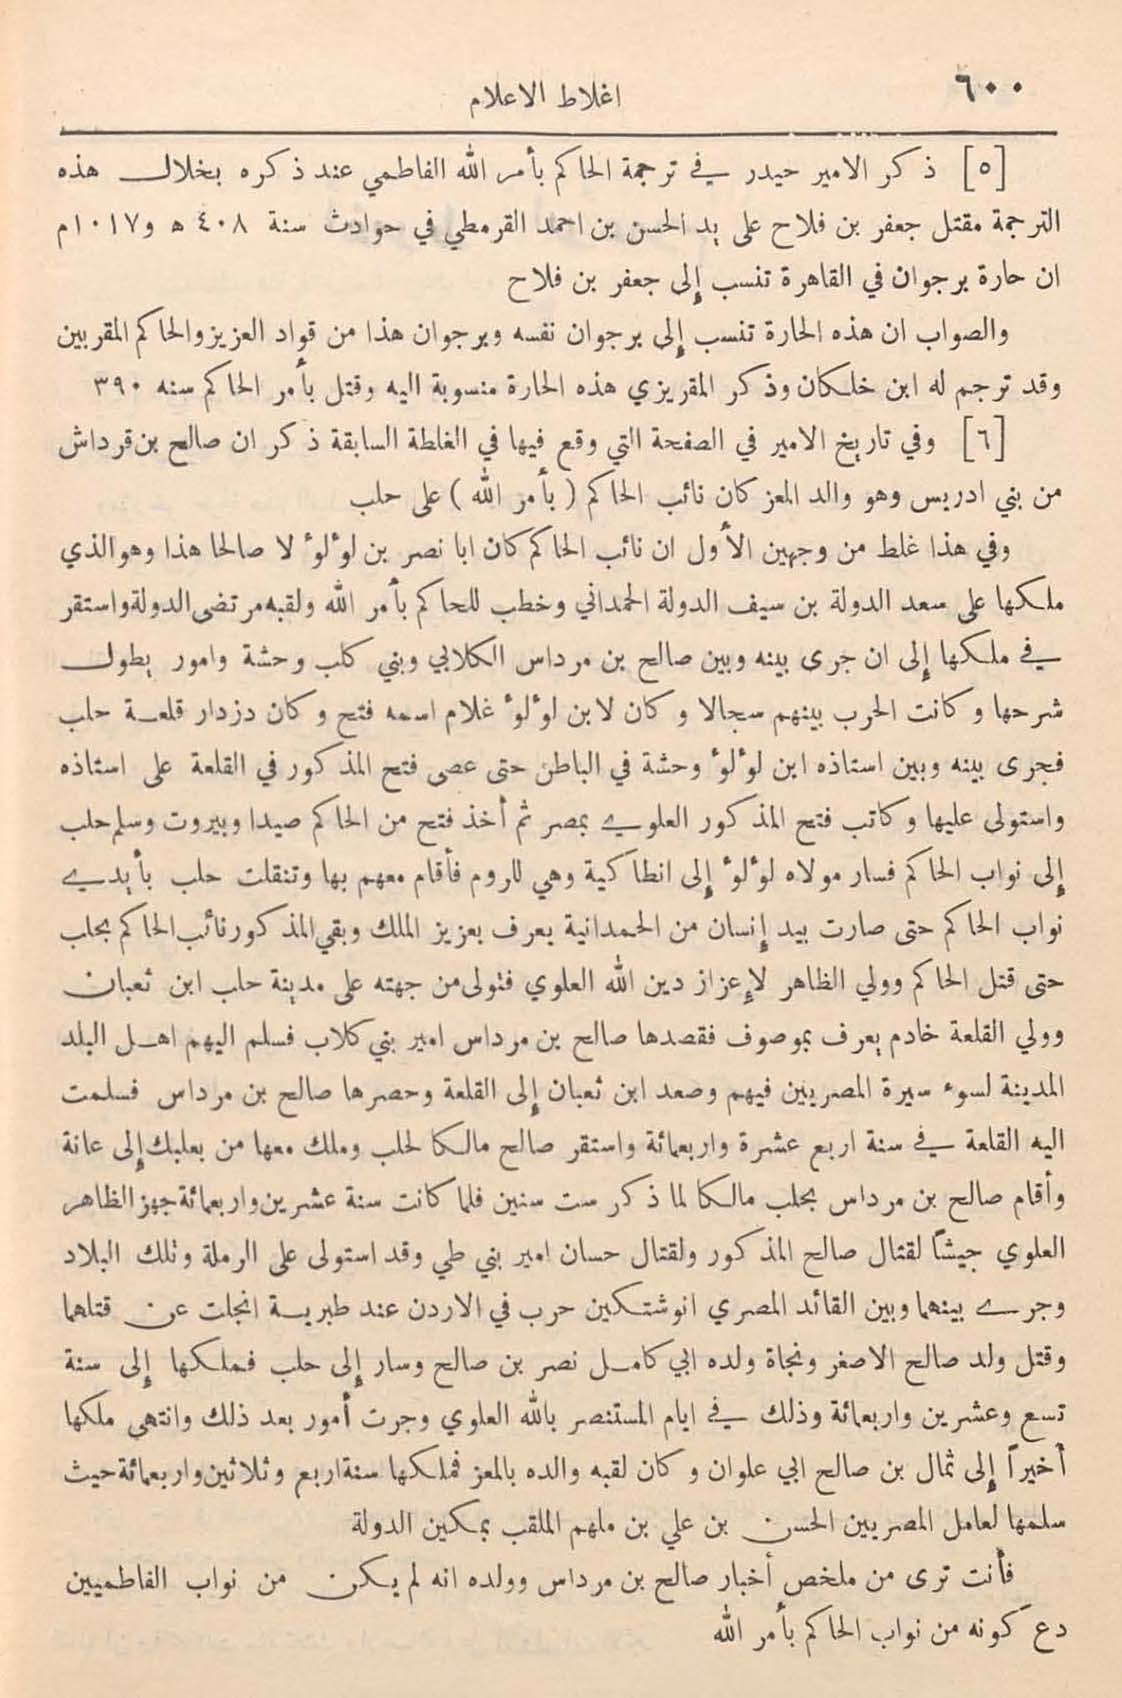 ٦٠٠
اغلاط الاعلام
[٥] ذكر الامير حيدر في ترجمة الحاكم بأمر الله الفاطمي عند ذكره بخلال هذه
الترجمة مقتل جعفر بن فلاح على يد الحسن بن احمد القرمطي في حوادث سنة ٤٠٨ ه و١٠١٧م
ان حارة برجوان في القاهرة تنسب إلى جعفر بن فلاح
والصواب ان هذه الحارة تنسب إلى برجوان نفسه وبرجوان هذا من قواد العزيز والحاكم المقربين
وقد ترجم له ابن خلكان وذكر المقريزي هذه الحارة منسوبة اليه وقتل بأمر الحاكم سنه ٣٩٠
[٦] وفي تاريخ الامير في الصفحة التي وقع فيها في الغلطة السابقة ذكر ان صالح بن قرداش
من بني ادريس وهو والد المعز كان نائب الحاكم ( بأمر الله ) على حلب
وفي هذا غلط من وجهين الأول ان نائب الحاكم كان ابا نصر بن لوٴلوٴ لا صالحا هذا وهو الذي
ملكها على سعد الدولة بن سيف الدولة الحمداني وخطب للحاكم بأمر الله ولقبه مرتضى الدولة واستقر
في ملكها إلى ان جرى بينه وبين صالح بن مرداس الكلابي وبني كلب وحشة وامور يطول
شرحها وكانت الحرب بينهم سجالا وكان لابن لوٴلوٴ غلام اسمه فتح وكان دزدار قلعة حلب
فجرى بينه وبين استاذه ابن لوٴلوٴ وحشة في الباطن حتى عصى فتح المذكور في القلعة على استاذه
واستولى عليها وكاتب فتح المذكور العلوي بمصر ثم أخذ فتح من الحاكم صيدا وبيروت وسلم حلب
إلى نواب الحاكم فسار مولاه لوٴلوٴ إلى انطاكية وهي للروم فأقام معهم بها وتنقلت حلب بأيدي
نواب الحاكم حتى صارت بيد إنسان من الحمدانية يعرف بعزيز الملك وبقي المذكور نائب الحاكم بحلب
حتى قتل الحاكم وولي الظاهر لإعزاز دين الله العلوي فتولى من جهته على مدينة حلب ابن ثعبان
وولي القلعة خادم يعرف بموصوف فقصدها صالح بن مرداس امير بني كلاب فسلم اليهم اهل البلد
المدينة لسوء سيرة المصريين فيهم وصعد ابن ثعبان إلى القلعة وحصرها صالح بن مرداس فسلمت
اليه القلعة في سنة اربع عشرة واربعمائة واستقر صالح مالكا لحلب وملك معها من بعلبك إلى عانة
وأقام صالح بن مرداس بحلب مالكا لما ذكر ست سنين فلما كانت سنة عشرين واربعمائة جهز الظاهر
العلوي جيشاً لقتال صالح المذكور ولقتال حسان امير بني طي وقد استولى على الرملة وتلك البلاد
وجرى بينهما وبين القائد المصري انوشتكين حرب في الاردن عند طبرية انجلت عن قتلهما
وقتل ولد صالح الاصغر ونجاة ولده ابي كامل نصر بن صالح وسار إلى حلب فملكها إلى سنة
تسع وعشرين واربعمائة وذلك في ايام المستنصر بالله العلوي وجرت أمور بعد ذلك وانتهى ملكها
أخيراً إلى ثمال بن صالح ابي علوان وكان لقبه والده بالمعز فملكها سنة اربع وثلاثين واربعمائة حيث
سلمها لعامل المصريين الحسن بن علي بن ملهم الملقب بمكين الدولة
فأنت ترى من ملخص أخبار صالح بن مرداس وولده انه لم يكن من نواب الفاطميين
دع كونه من نواب الحاكم بأمر الله